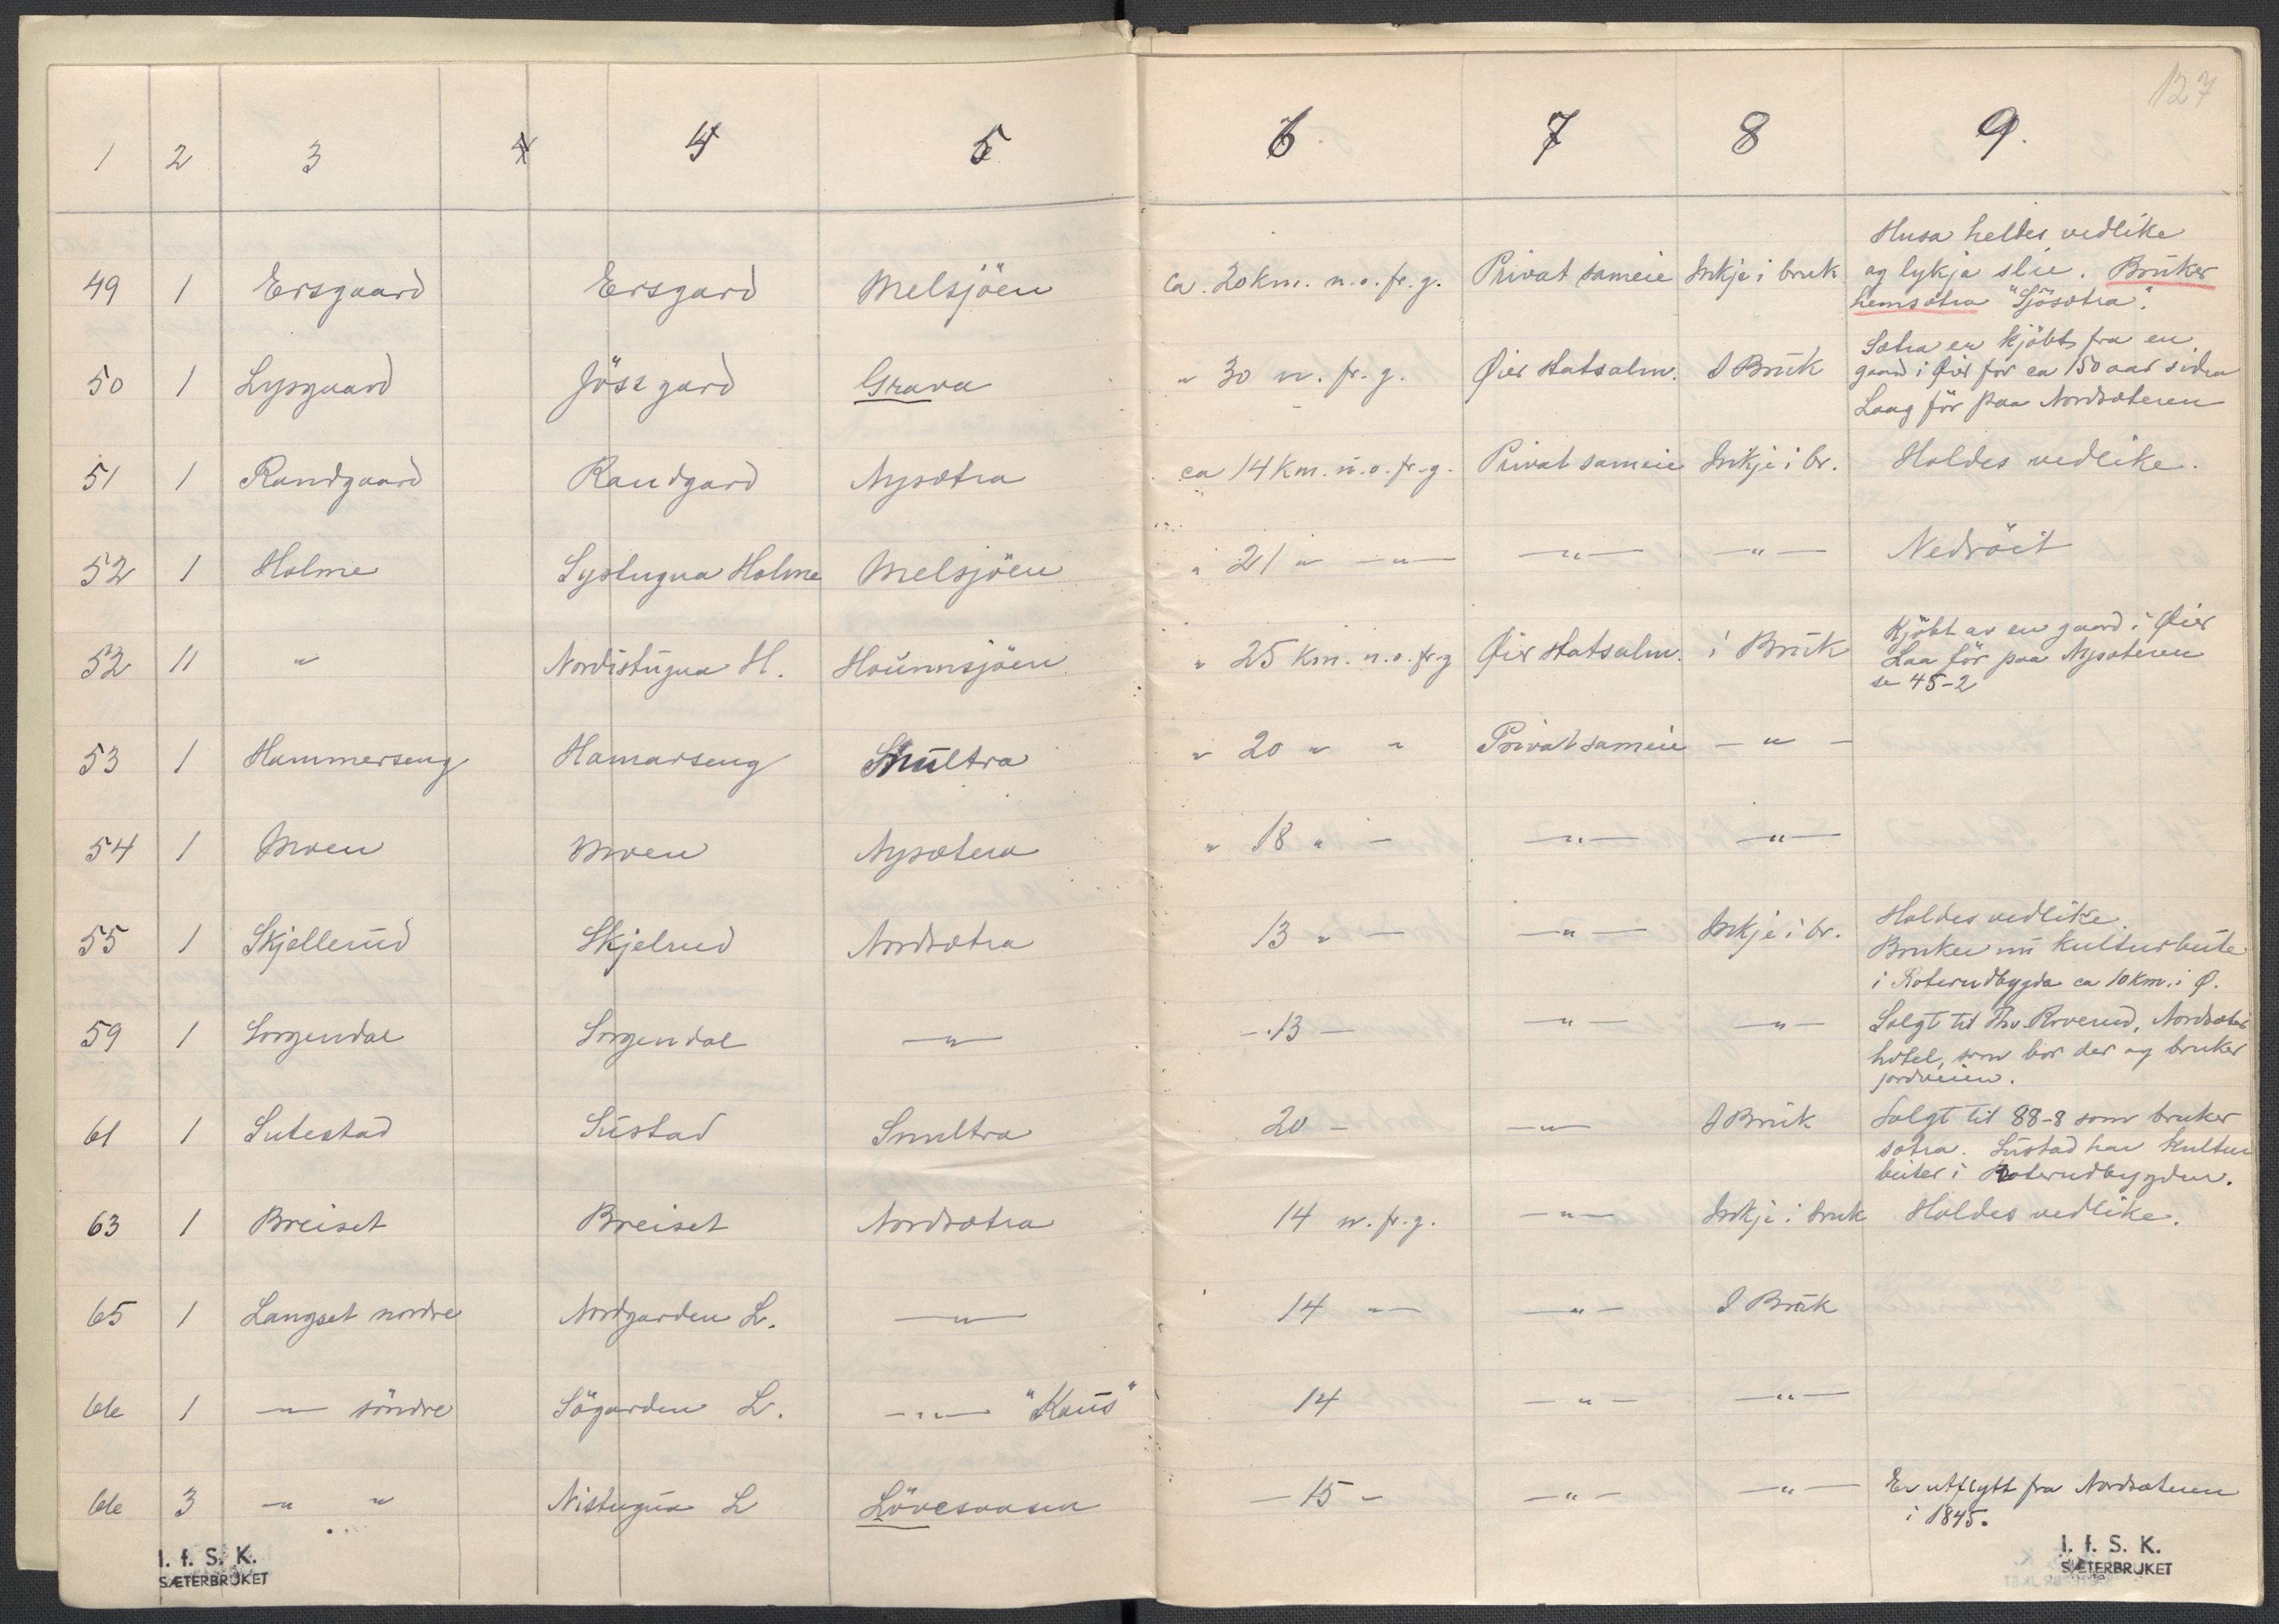 127
1 2 3 4 4 5 6 7 8 9.
Husa heldes vedlike
49 1 Ersgaard Ersgard Melsjöen ca. 20 km. n.o. fr. g. Privat sameie Inkje i bruk og lykja slie. Bruker
hemsætra "Sjösætra".
Sætra er kjöbt fra en
50 1 Lysgaard Jössgard Grava " 30 n. fr. g. Øier statsalm. I Bruk gaard i Øier for ca 150 aar siden
Laag för paa Nordsæteren
51 1 Randgaard Randgard Nysætra ca 14 km. n.o. fr. g. Privat sameie Inkje i br. Holdes vedlike.
52 1 Holme Systugua Holme Melsjöen " 21 " —"— —"— —"— Nedröit
52 11 " Nordistugua H. Hounnsjöen " 25 km. n.o. fr. g Øier statsalm. i Bruk Kjöbt av en gaard i Øier
Laa för paa Nysæteren
se 45-2
53 1 Hammerseng Hamarseng Smultra " 20 " " Privat sameie —"—
54 1 Moen Moen Nysætera " 18 " — —"— —"—
55 1 Skjellerud Skjelrud Nordsætra 13 " — —"— Inkje i br. Holdes vedlike.
Bruker nu kulturbeite
i Roterudbygda ca 10 km. i Ø.
59 1 Sorgendal Sorgendal —"— —.13 — —"— —"— Solgt til Thv. Roverud, Nordsæter
hotel, som bor der og bruker
jordveien.
61 1 Sutestad Sustad Smultra 20 — —"— I Bruk Solgt til 88-8 som bruker
sætra. Sustad har kultur
beiter i Roterudbygden.
63 1 Breiset Breiset Nordsætra 14 n. fr. g. —"— Inkje i bruk Holdes vedlike.
65 1 Langset nordre Nordgarden L. —"— 14 "— —"— I Bruk
66 1 —"— söndre Sögarden L. —"— "Kaus" 14 —"— —"—
66 3 —" " Nistugua L Lövesaasen —15— —"— —"— Er utflytt fra Nordsæteren
i 1845.
I. f. S. K.
SÆTERBRUKET
I. f. S. K.
SÆTERBRUKET